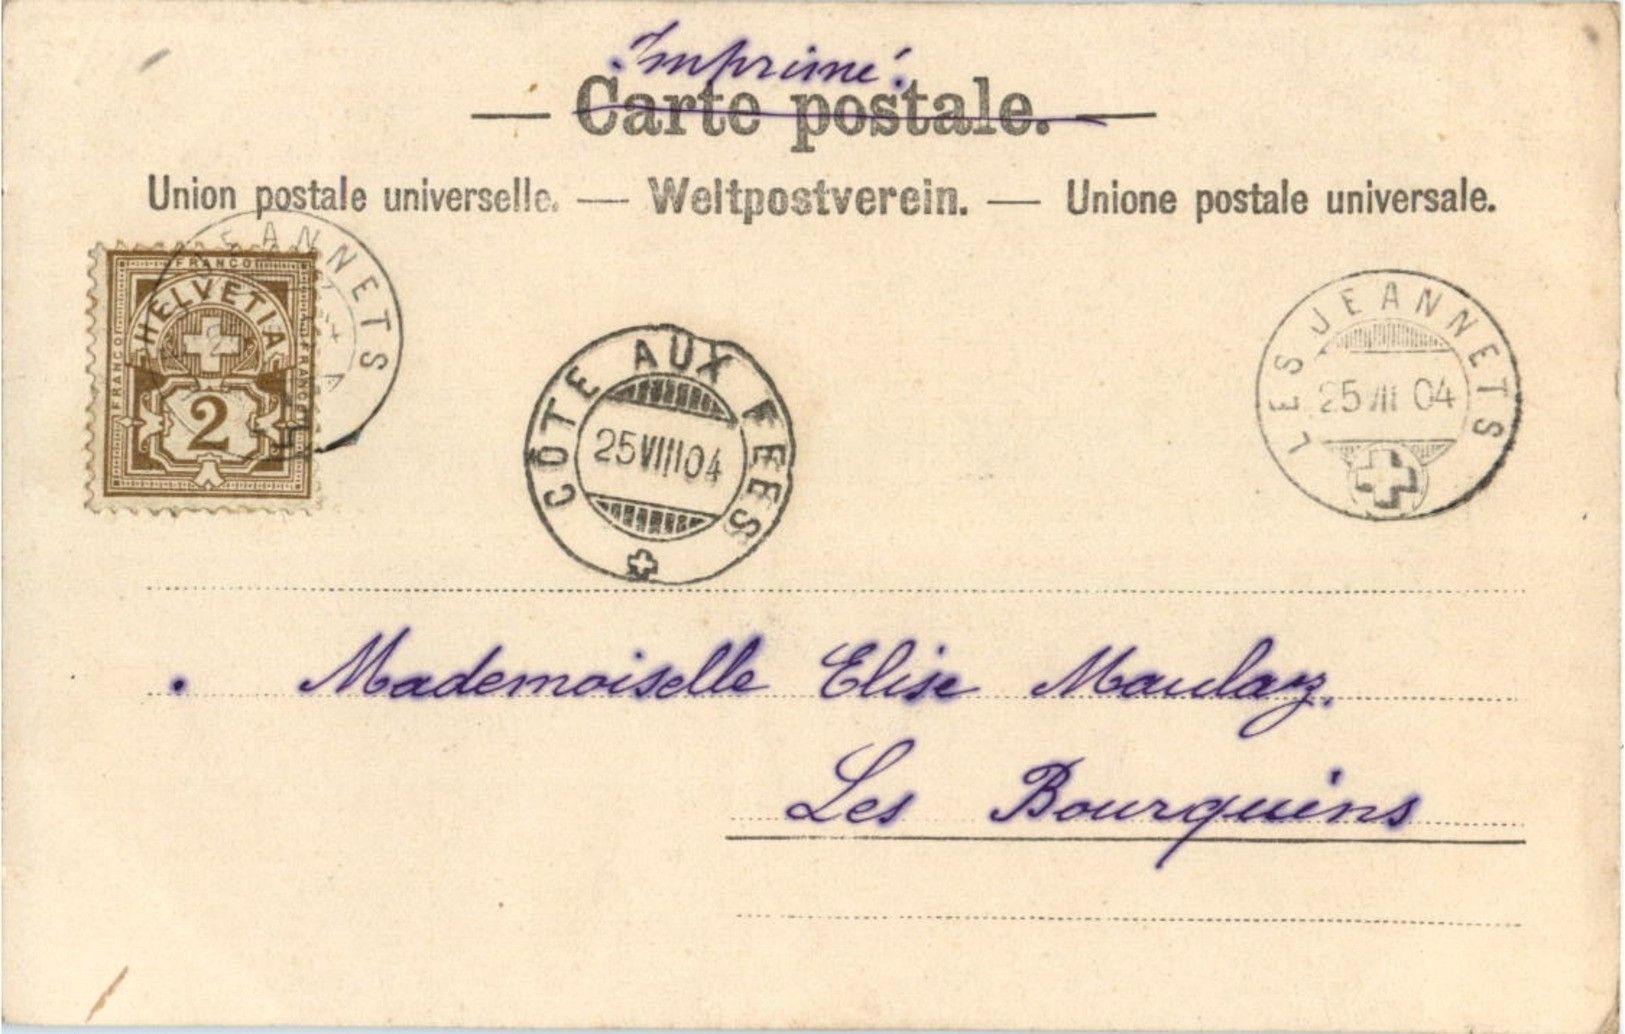 Imprimé.
— Carte postale. —
Union postale universelle. — Weltpostverein. — Unione postale universale.
FRANCO
HELVETIA
FRANCO
FRANCO
2
JEANNETS
CÔTE AUX FÉES
25 VIII 04
LES JEANNETS
25 VIII 04
Mademoiselle Elise Maulaz.
Les Bourquins